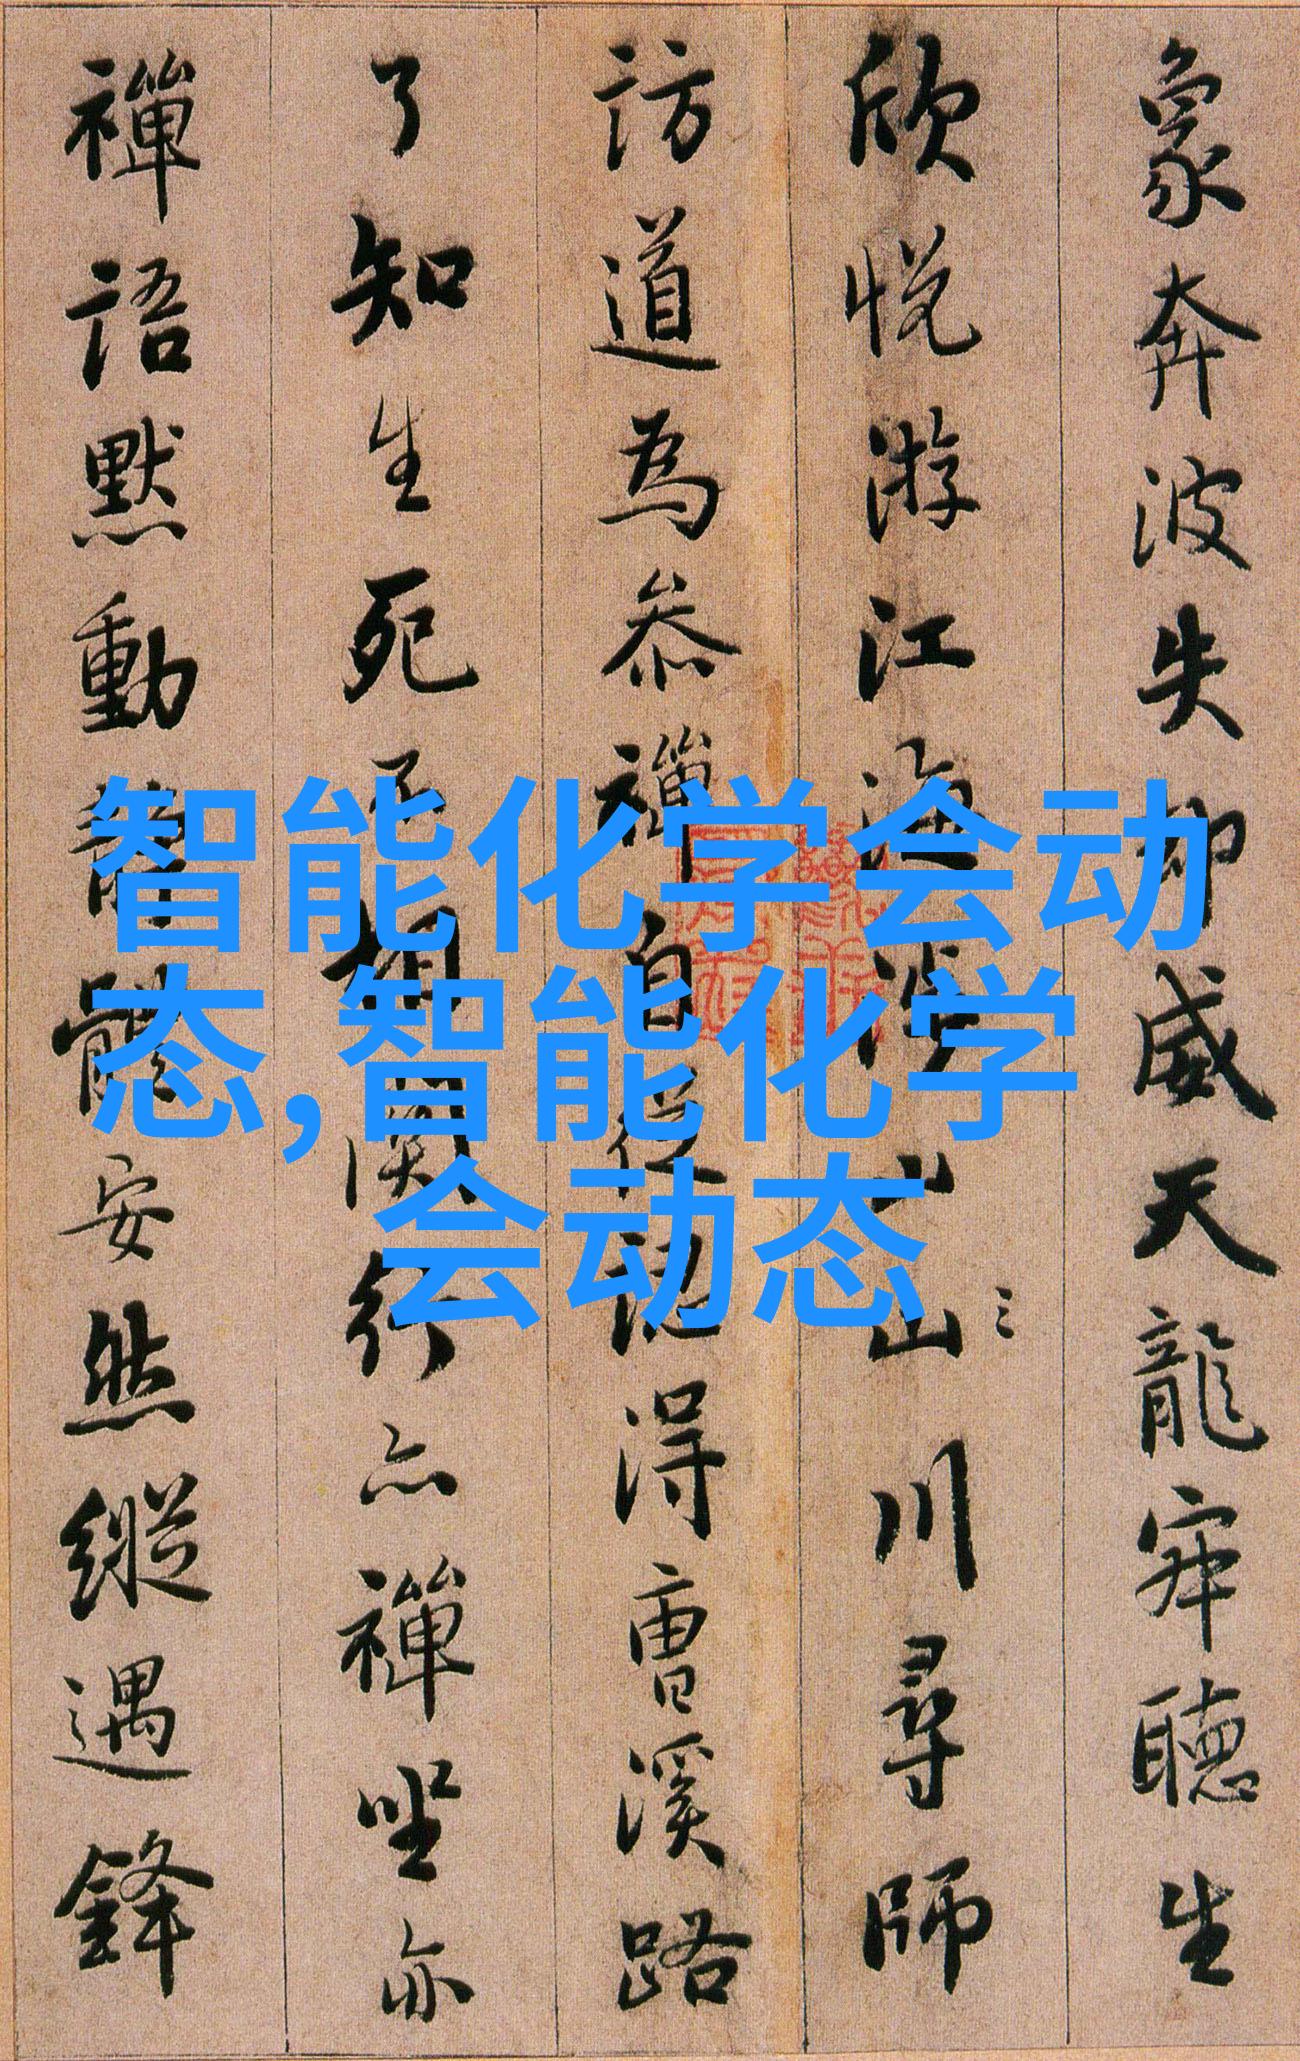 象奔波失却威天龍寂聽生
欣悦游江海涉山川尋師
訪道為参禪自從認得曹溪路
了知生死不相関行亦禪坐亦
禪語默動静體安然縱遇鋒
智能化学会动
态,智能化学
会动态